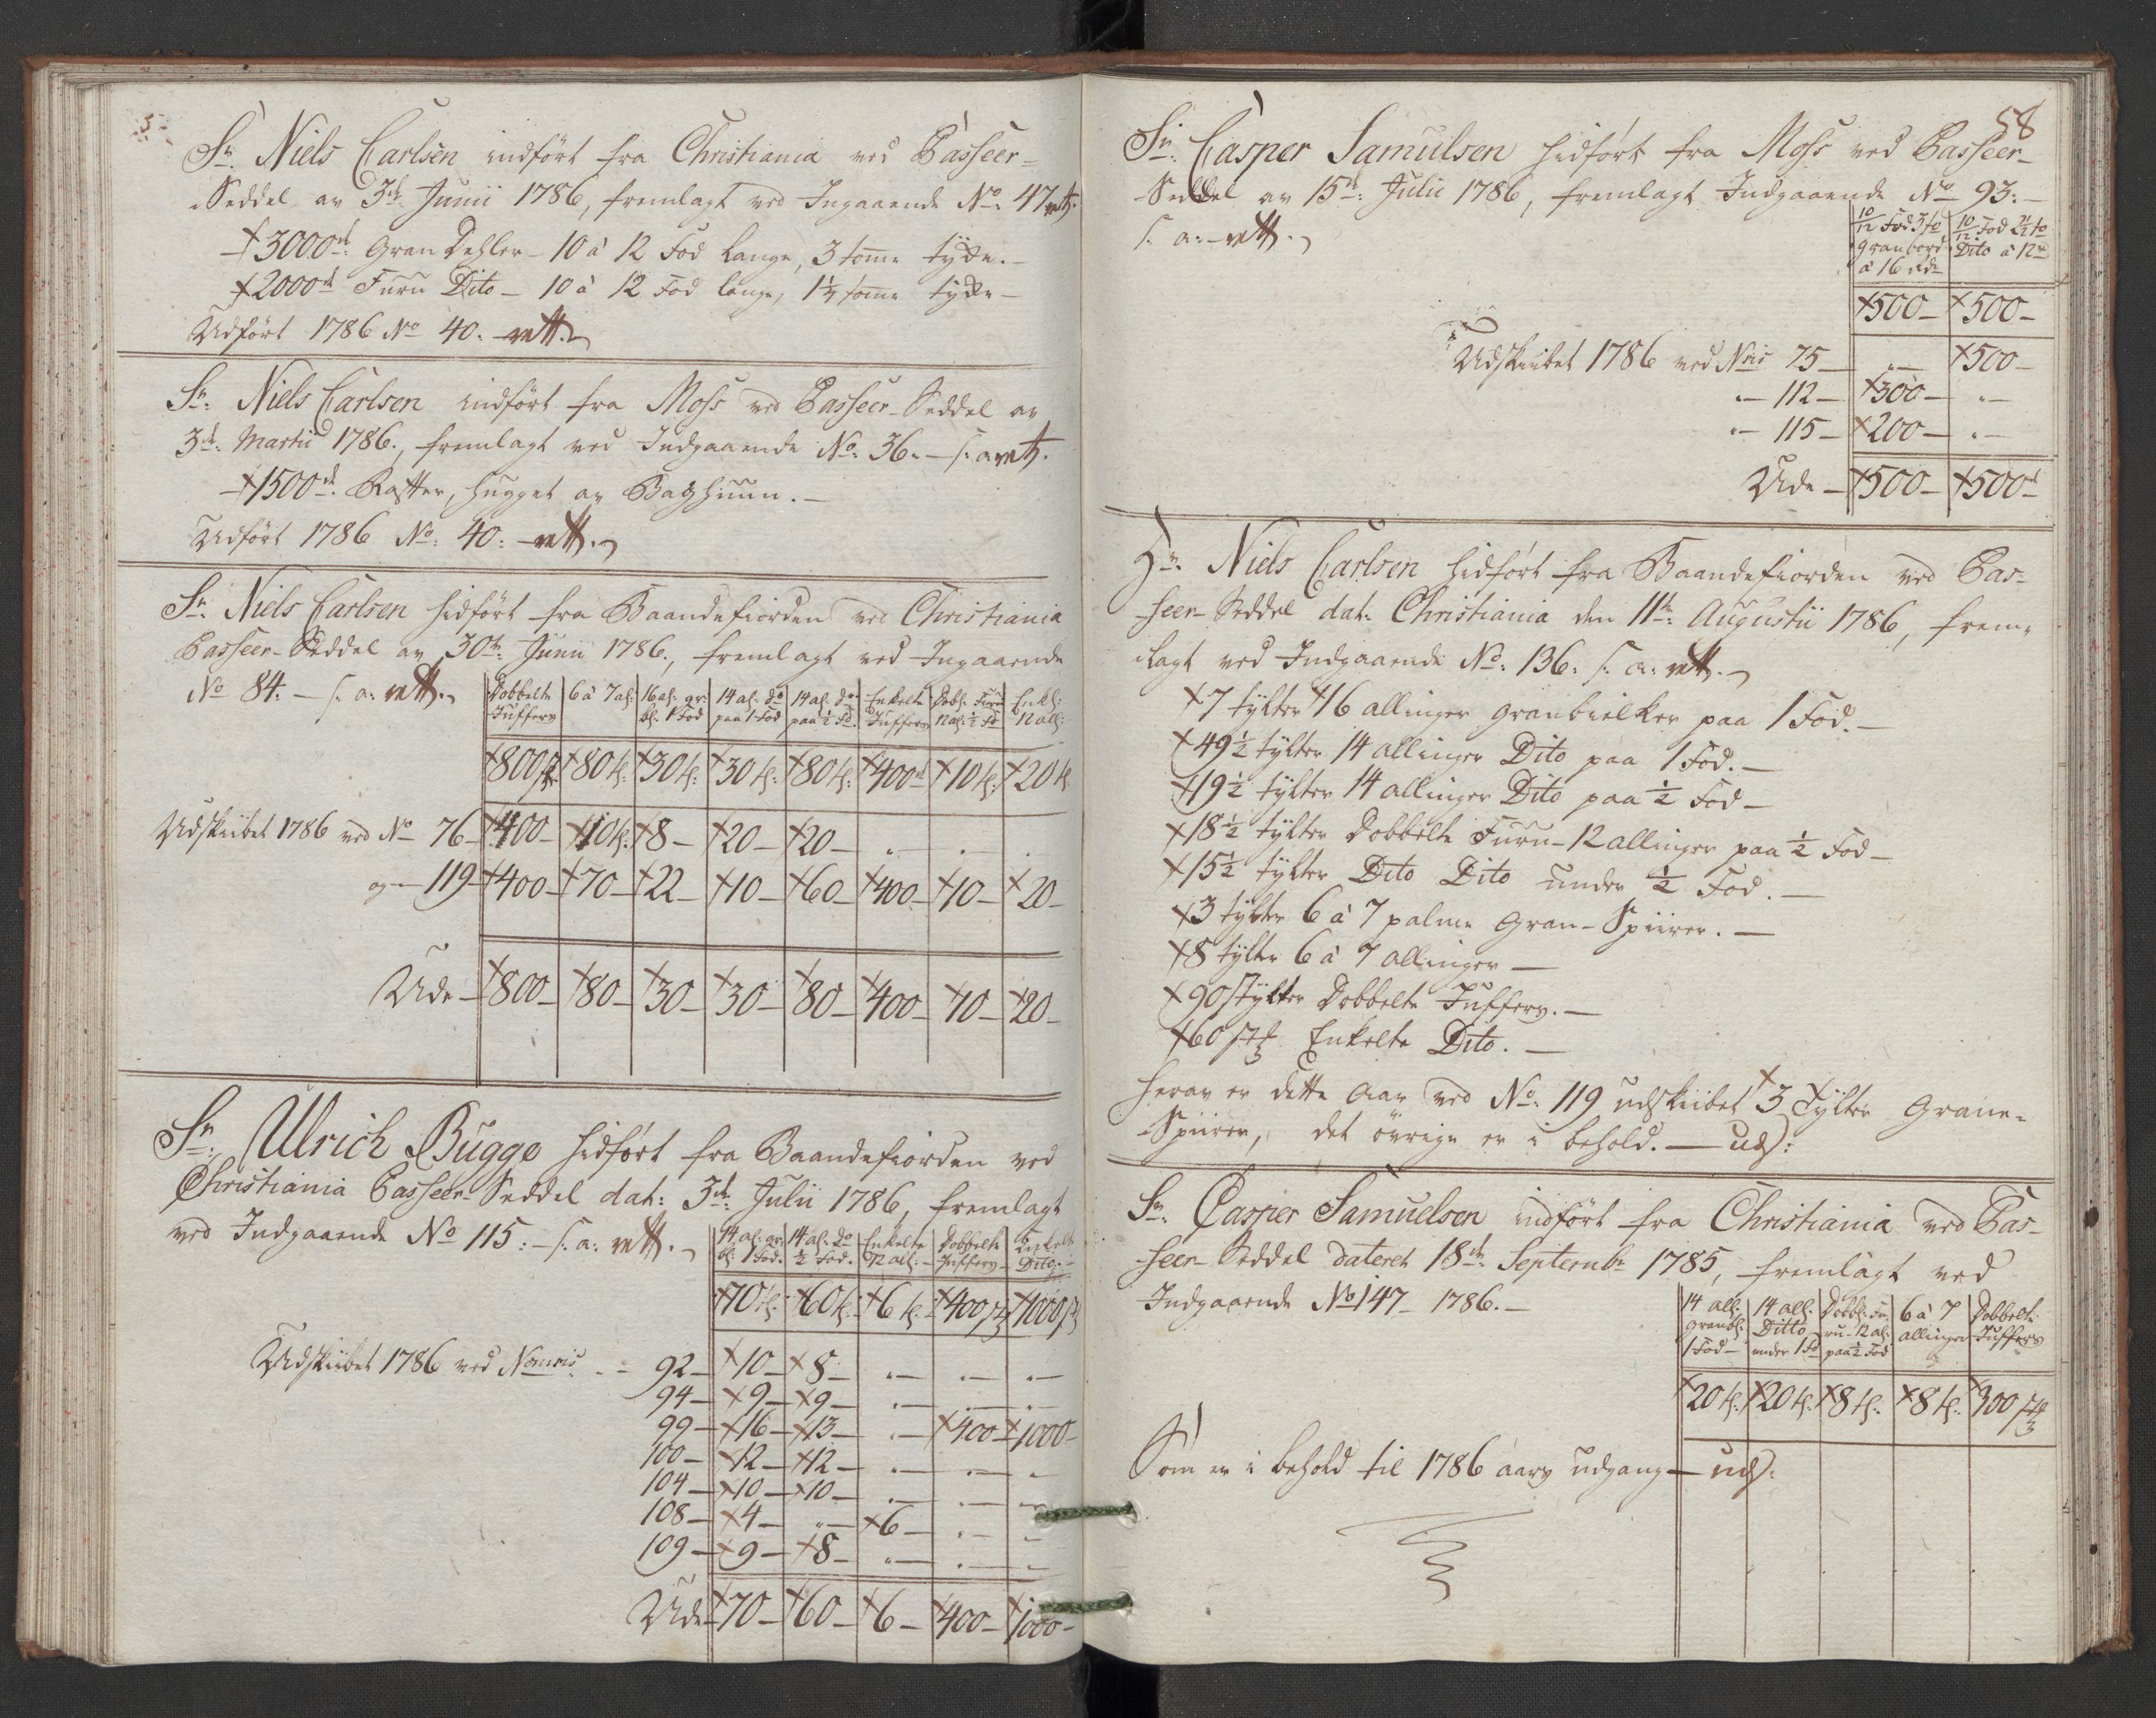 Sr. Niels Carlsen indført fra Christiania ved Passeer-
Seddel av 3de Junii 1786, fremlagt ved Ingaaende No. 47
3000de Gran Dehler - 10 à 12 Fod Lange, 3 tome tyke.
2000de Furu Dito - 10 à 12 Fod lange, 1¼ tome tyke
Udført 1786 No 40.
Sr. Niels Carlsen indført fra Moss ved Passeer-Seddel av
3de Martii 1786., fremlagt ved Indgaaende No. 36. - s: a
1500de Raffter, hugget av Baghuun.
Udført 1786 No: 40:
Sr. Niels Carlsen hidført fra Baandefiorden ved Christiania
Passeer-Seddel av 30te Junii 1786., fremlagt ved Ingaaende
No 84. - s: a:
Dobbelte Juffers | 6 à 7 al: | 16 al: gr: bl. 1 Fod | 14 al: do paa 1 Fod | 14 al: do paa ½ Fd. | Enkelte Juffers | Dobl: Furu 12 al: ½ Fd | Enkl: 12 all:
800 | 80 t: | 30 t: | 30 t: | 80 t: | 400 | 10 t: | 20 t
Udskibet 1786 ved No 76 - 400 - 10 t: 8 - 20 - 20 -
og - 119 - 400 - 70 - 22 - 10 - 60 - 400 - 10 - 20 -
Ude - 800 - 80 - 30 - 30 - 80 - 400 - 10 - 20 -
Sr. Ulrich Bugge hidført fra Baandefiorden ved
Christiania Passeer-Seddel dat: 3de Julii 1786, fremlagt
ved Indgaaende No 115: - s: a:
14 al: gr: bl: 1 Fod. | 14 al: do ½ Fod. | Enkelte 12 all: | Dobbelte Juffers | Enkelte Dito
70 t: | 60 t: | 6 t: | 400 | 1000
Udskibet 1786 ved 92 - 10 - 8 -
94 - 9 - 9 -
99 - 16 - 13 - " - 400 - 1000 -
100 - 12 - 12 -
104 - 10 - 10 -
108 - 4 - " - 6 -
109 - 9 - 8 -
Ude - 70 - 60 - 6 - 400 - 1000 -
58
Sr: Casper Samuelsen hidført fra Moss ved Passeer-
Seddel av 15de: Julii 1786, fremlagt Indgaaende No 93:
s: a:
10/12 Fod 3 to granbord | 10/12 Fod Dito à 12
à 16
500 - 500 -
Udskibet 1786 ved Nris 75 - " - 500 -
" - 112 - 300 - " -
" - 115 - 200 - " -
Ude - 500 - 500
Hr. Niels Carlsen hidført fra Baandefiorden ved Pas-
seer-Seddel dat: Christiania den 11te: Augustii 1786, frem-
lagt ved Indgaaende No: 136: s: a:
7 tylter 16 allinger granbielker paa 1 Fod.
49½ tylter 14 allinger Dito paa 1 Fod.
19½ tylter 14 allinger Dito paa ½ Fod
18½ tylter Dobbelte Furu-12 allinger paa ½ Fod
15½ tylter Dito Dito under ½ Fod.
3 tylter 6 à 7 palme Gran-Spiirer.
8 tylter 6 à 7 allinger
90 tylter Dobbelte Juffers.
60 Enkelte Dito.
herav er dette Aar ved No: 119 udskibet 3 Tylter Grane-
Spiirer, det øvrige er i behold.
Sr. Casper Samuelsen indført fra Christiania ved Pas-
seer-Seddel dateret 18de Septembr 1785, fremlagt ved
Indgaaende No 147 - 1786.
14 all: granbl: 1 Fod | 14 all: Ditto under 1 Fd | Dobbl: Furu-12 al: paa ½ Fod | 6 à 7 allinger | Dobbelte Juffers
20 t: | 20 t: | 8 t: | 8 t: | 300
Som er i behold til 1786 aars udgang